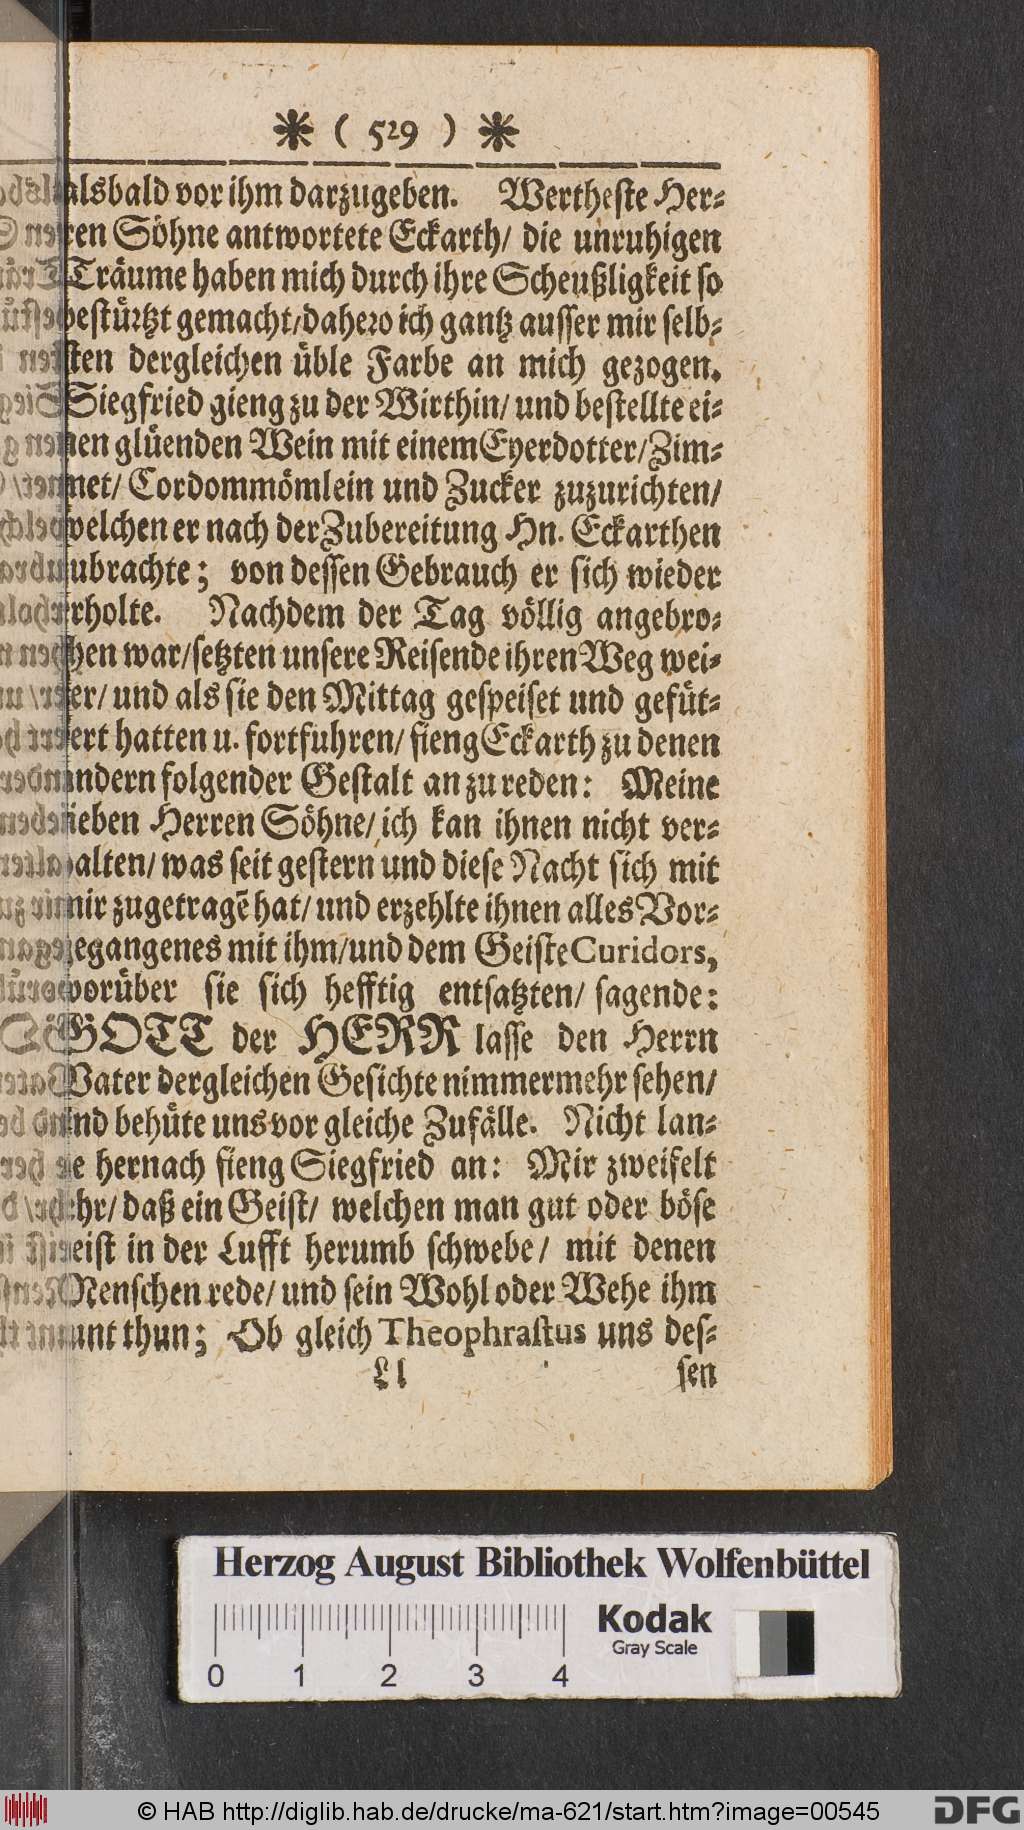 ❋ ( 529 ) ❋
alsbald vor ihm darzugeben. Wertheste Her-
ren Söhne antwortete Eckarth/ die unruhigen
Träume haben mich durch ihre Scheußligkeit so
bestürtzt gemacht/ dahero ich gantz ausser mir selb-
sten dergleichen üble Farbe an mich gezogen.
Siegfried gieng zu der Wirthin/ und bestellte ei-
nen glüenden Wein mit einem Eyerdotter/ Zim-
met/ Cordommömlein und Zucker zuzurichten/
welchen er nach der Zubereitung Hn. Eckarthen
zubrachte; von dessen Gebrauch er sich wieder
erholte. Nachdem der Tag völlig angebro-
chen war/ setzten unsere Reisende ihren Weg wei-
ter/ und als sie den Mittag gespeiset und gefüt-
tert hatten u. fortfuhren/ fieng Eckarth zu denen
andern folgender Gestalt an zu reden: Meine
lieben Herren Söhne/ ich kan ihnen nicht ver-
halten/ was seit gestern und diese Nacht sich mit
mir zugetragē hat/ und erzehlte ihnen alles Vor-
gegangenes mit ihm/ und dem Geiste Curidors,
worüber sie sich hefftig entsatzten/ sagende:
GOTT der HERR lasse den Herrn
Vater dergleichen Gesichte nimmermehr sehen/
und behüte uns vor gleiche Zufälle. Nicht lan-
ge hernach fieng Siegfried an: Mir zweifelt
sehr/ daß ein Geist/ welchen man gut oder böse
heist in der Lufft herumb schwebe/ mit denen
Menschen rede/ und sein Wohl oder Wehe ihm
kunt thun; Ob gleich Theophrastus uns des-
Ll sen
Herzog August Bibliothek Wolfenbüttel
Kodak
Gray Scale
0 1 2 3 4
© HAB http://diglib.hab.de/drucke/ma-621/start.htm?image=00545
DFG